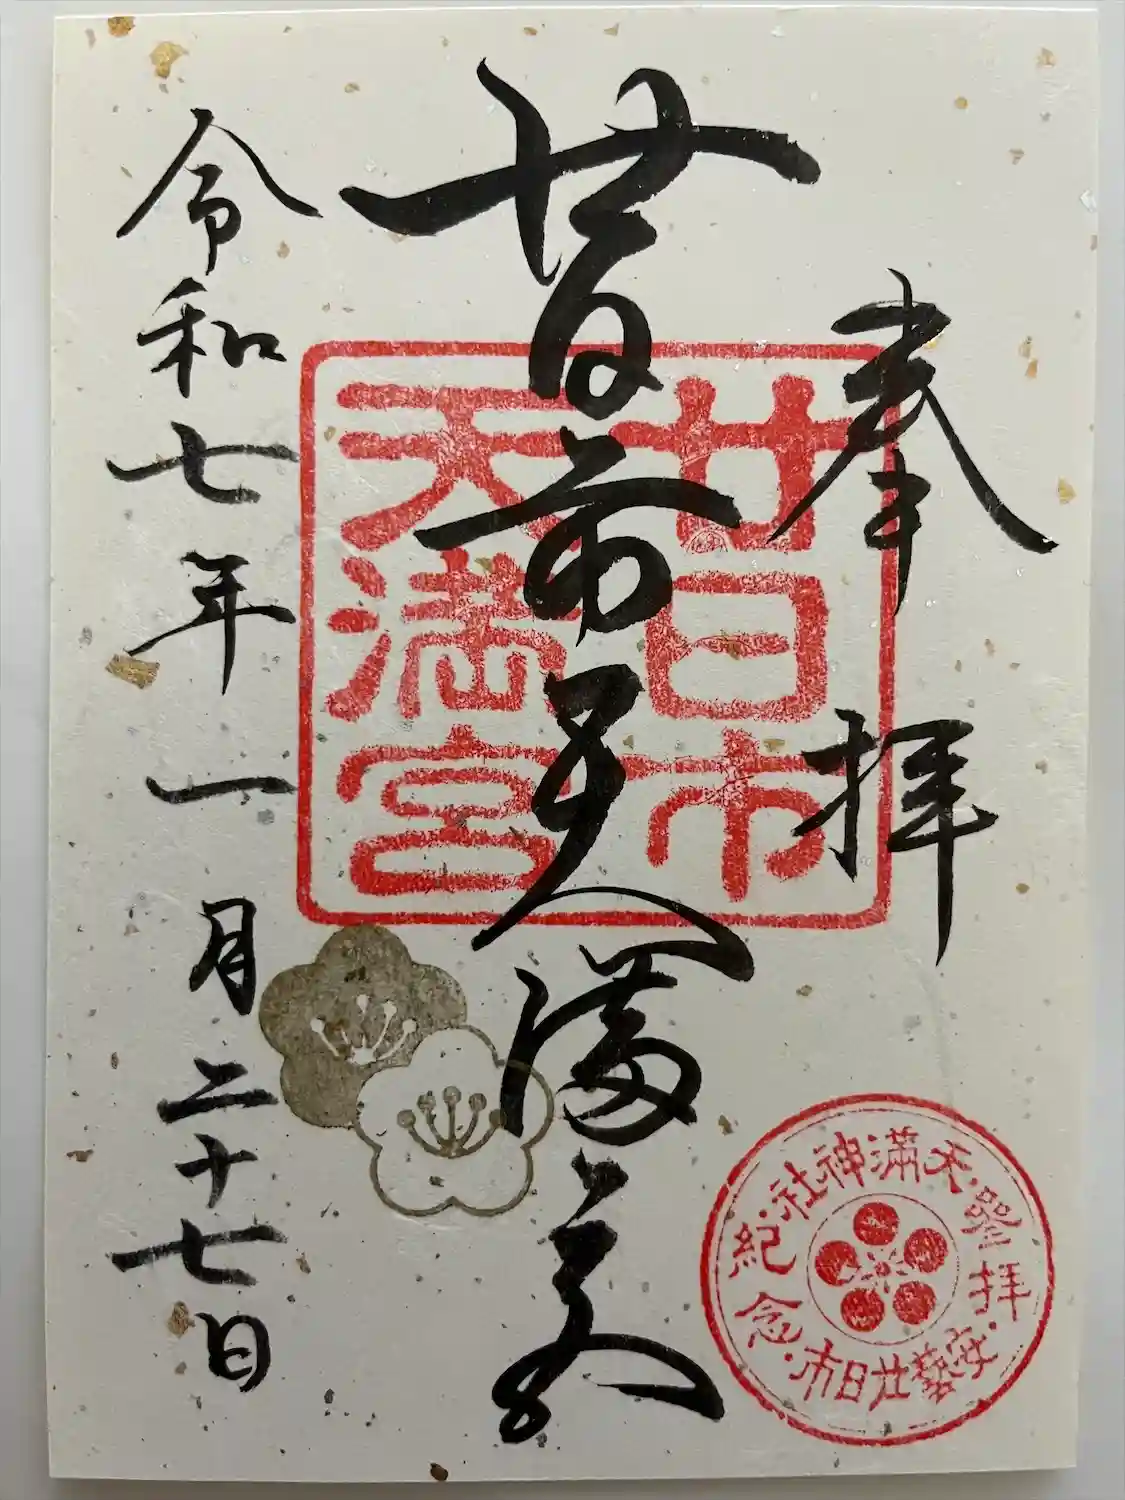 奉拝
廿日市天満宮
令和七年一月二十七日
廿日市
天満宮
天満神社
登拝
紀念
安藝廿日市